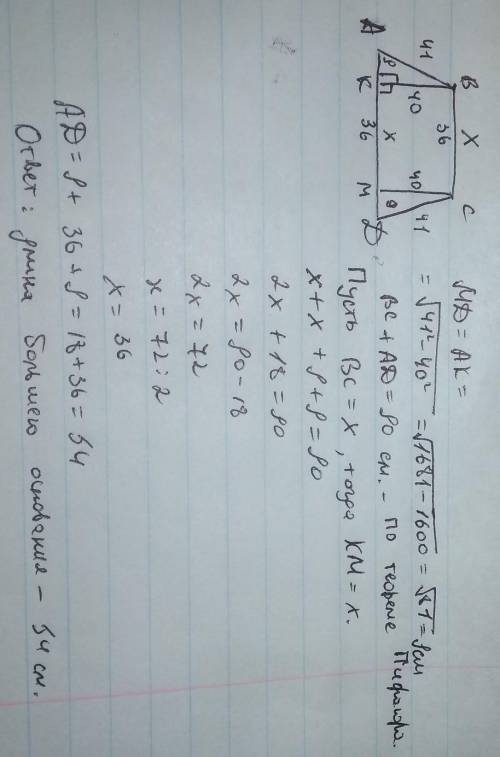 B X C
41 36 41
40 40
9 x 9
A K 36 M D
MD = AK =
= √41²-40² = √1681-1600 = √81 = 9см
BC + AD = 90 см. - по теореме Пифагора.
Пусть BC = x, тогда KM = x.
x + x + 9 + 9 = 90
2x + 18 = 90
2x = 90 - 18
2x = 72
x = 72 : 2
x = 36
AD = 9 + 36 + 9 = 18 + 36 = 54
Ответ: длина большего основания - 54 см.